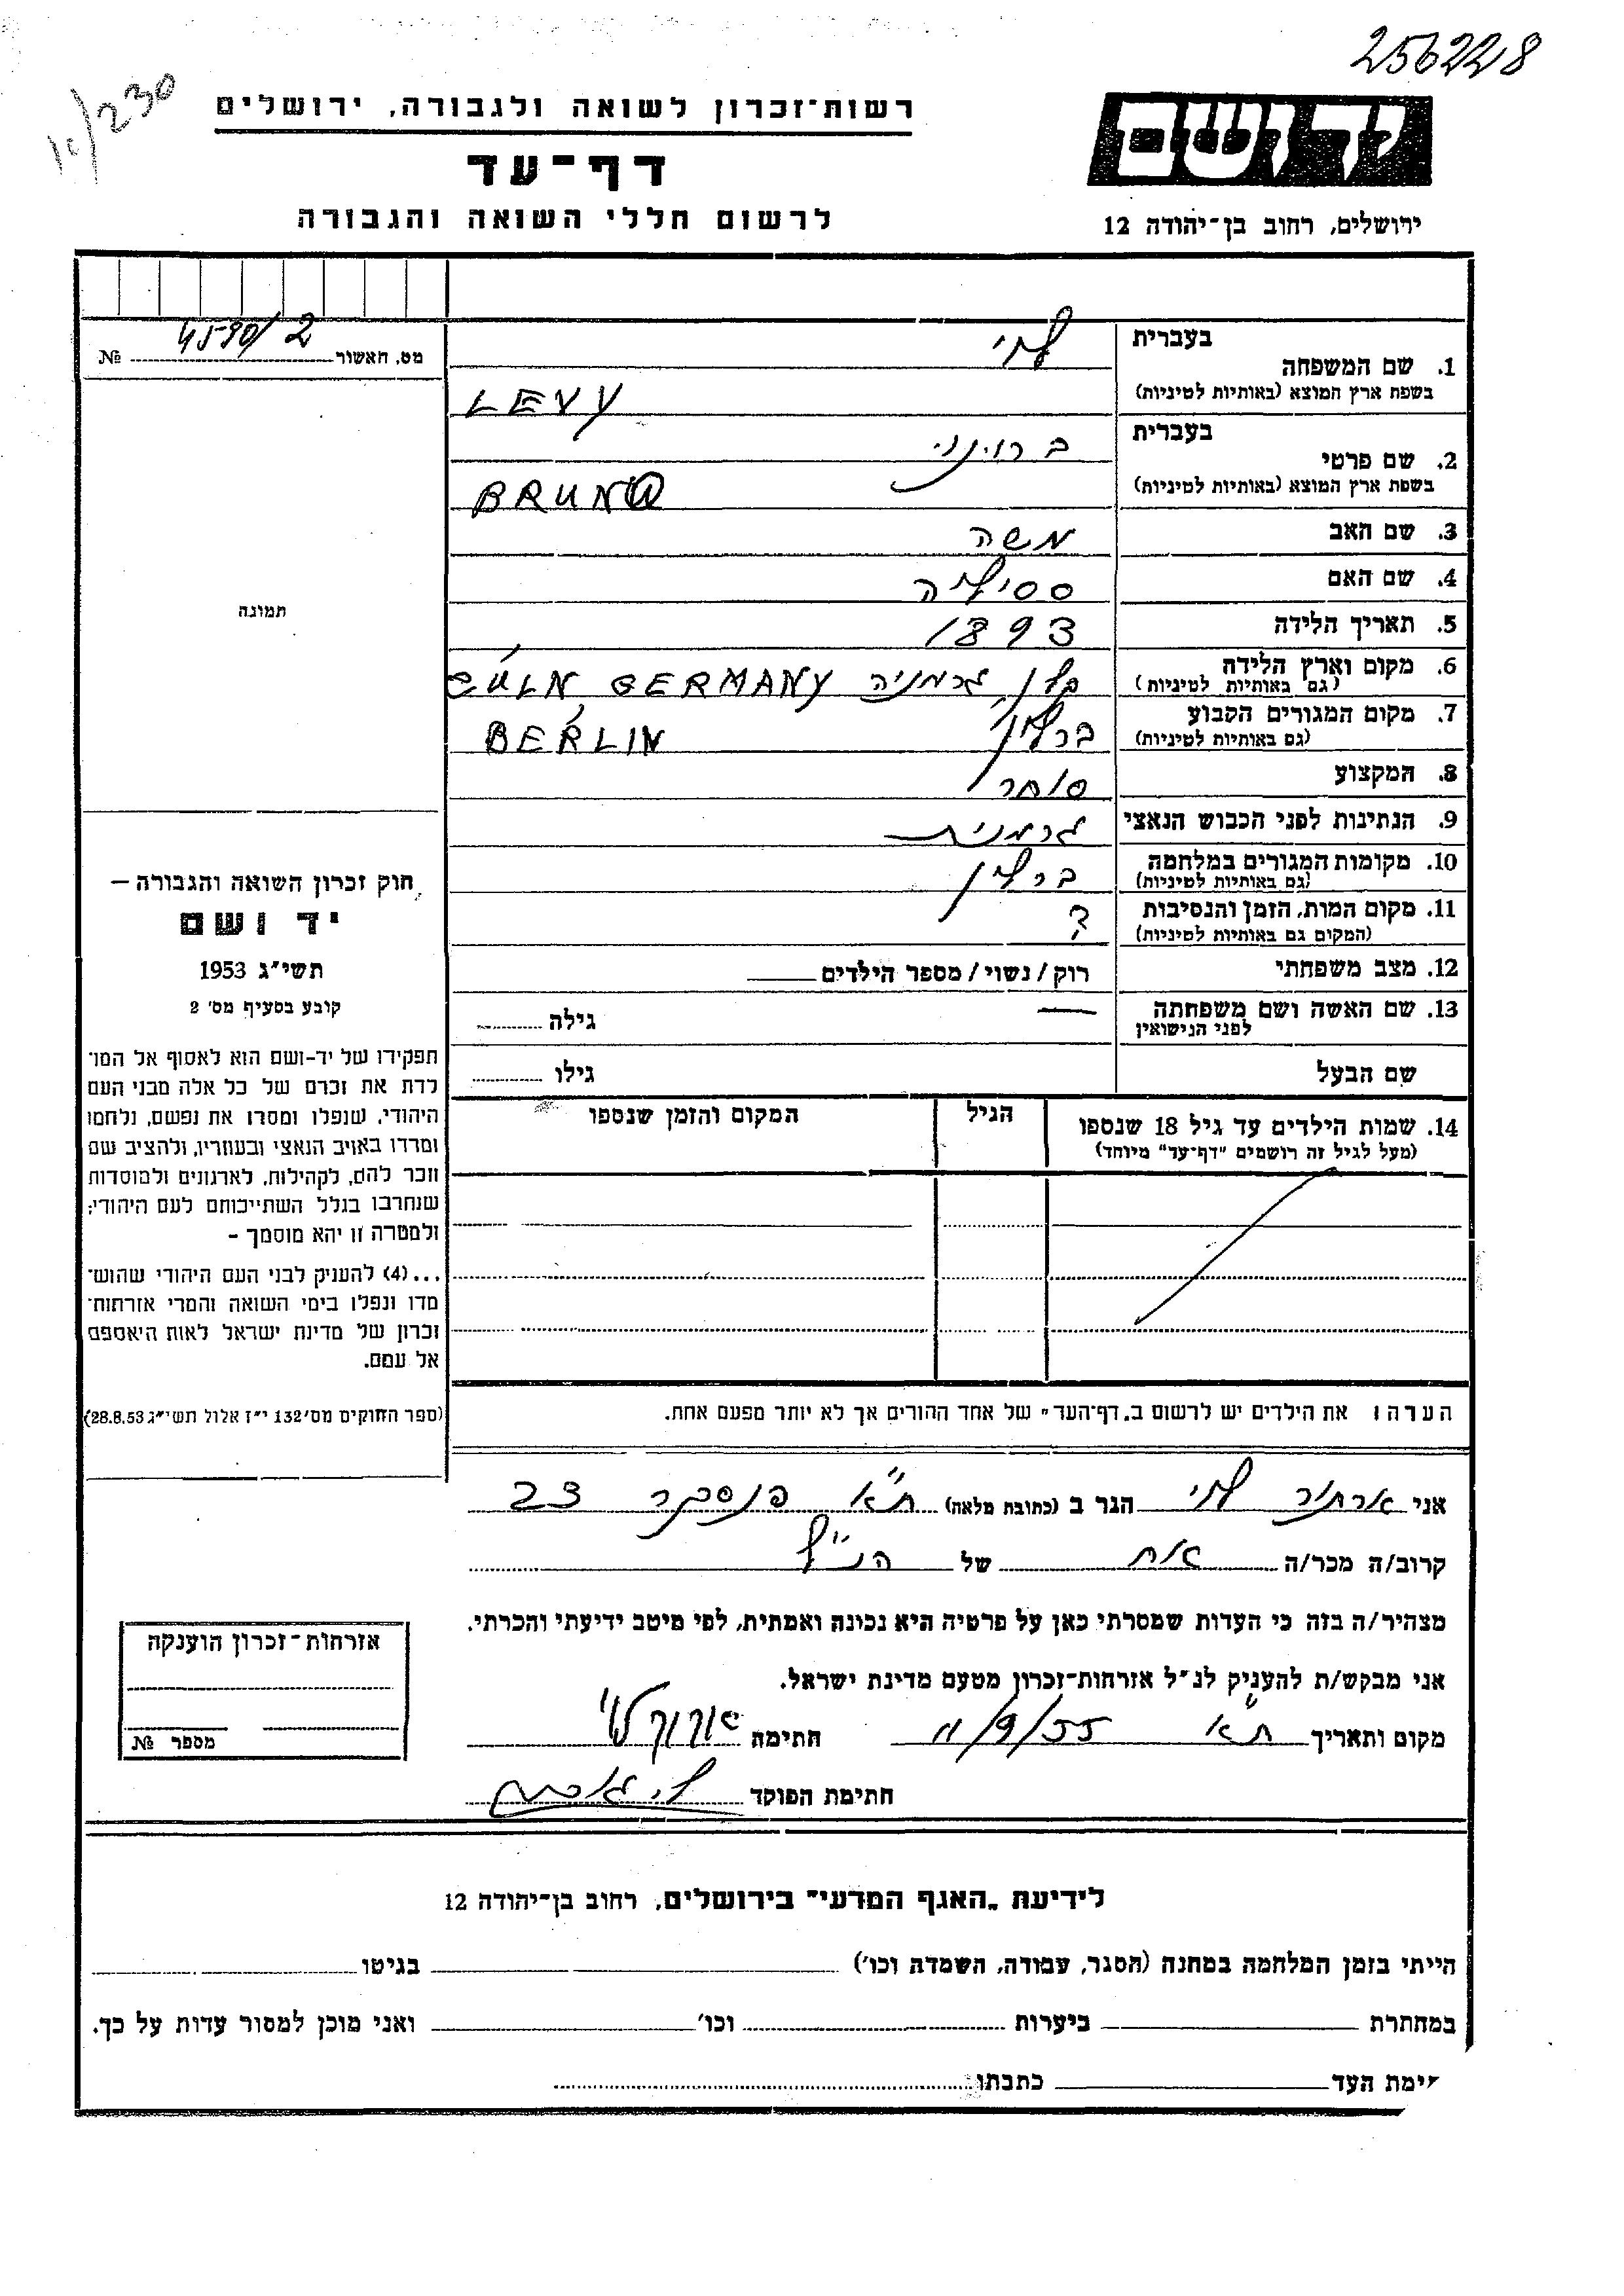 256228
10/230
רשות־זכרון לשואה ולגבורה, ירושלים
דף־עד
לרשום חללי השואה והגבורה
ידושם
ירושלים, רחוב בן־יהודה 12
מס. האשור 4590/2 №
תמונה
חוק זכרון השואה והגבורה —
יד ושם
תשי״ג 1953
קובע בסעיף מס' 2
תפקידו של יד-ושם הוא לאסוף אל המו־
לדת את זכרם של כל אלה מבני העם
היהודי, שנפלו ומסרו את נפשם, נלחמו
ומרדו באויב הנאצי ובעוזריו, ולהציב שם
וזכר להם, לקהילות, לארגונים ולמוסדות
שנחרבו בגלל השתייכותם לעם היהודי;
ולמטרה זו יהא מוסמך –
...(4) להעניק לבני העם היהודי שהוש־
מדו ונפלו בימי השואה והמרי אזרחות־
זכרון של מדינת ישראל לאות היאספם
אל עמם.
(ספר החוקים מס' 132 י״ז אלול תשי״ג 28.8.53)
בעברית לוי
1. שם המשפחה
בשפת ארץ המוצא (באותיות לטיניות) LEVY
בעברית ברוינו
2. שם פרטי
בשפת ארץ המוצא (באותיות לטיניות) BRUNO
3. שם האב משה
4. שם האם ססיליה
5. תאריך הלידה 1893
6. מקום וארץ הלידה גרמניה GERMANY
(גם באותיות לטיניות)
7. מקום המגורים הקבוע ברלין BERLIN
(גם באותיות לטיניות)
8. המקצוע סוחר
9. הנתינות לפני הכבוש הנאצי גרמנית
10. מקומות המגורים במלחמה ברלין
(גם באותיות לטיניות)
11. מקום המות, הזמן והנסיבות ?
(המקום גם באותיות לטיניות)
12. מצב משפחתי רוק / נשוי / מספר הילדים
13. שם האשה ושם משפחתה — גילה
לפני הנישואין
שם הבעל גילו
14. שמות הילדים עד גיל 18 שנספו הגיל המקום והזמן שנספו
(מעל לגיל זה רושמים "דף־עד" מיוחד)
הערה: את הילדים יש לרשום ב„דף־העד" של אחד ההורים אך לא יותר מפעם אחת.
אני ארתור לוי הגר ב (כתובת מלאה) ת״א פנסקר 23
קרוב/ה מכר/ה אח של הנ״ל
מצהיר/ה בזה כי העדות שמסרתי כאן על פרטיה היא נכונה ואמתית, לפי מיטב ידיעתי והכרתי.
אני מבקש/ת להעניק לנ״ל אזרחות־זכרון מטעם מדינת ישראל.
מקום ותאריך ת״א 11/9/55 חתימה
חתימת הפוקד
אזרחות־זכרון הוענקה
מספר №
לידיעת „האגף המדעי" בירושלים, רחוב בן־יהודה 12
הייתי בזמן המלחמה במחנה (הסגר, עבודה, השמדה וכו') בגיטו
במחתרת ביערות וכו' ואני מוכן למסור עדות על כך.
ימת העד כתבתו